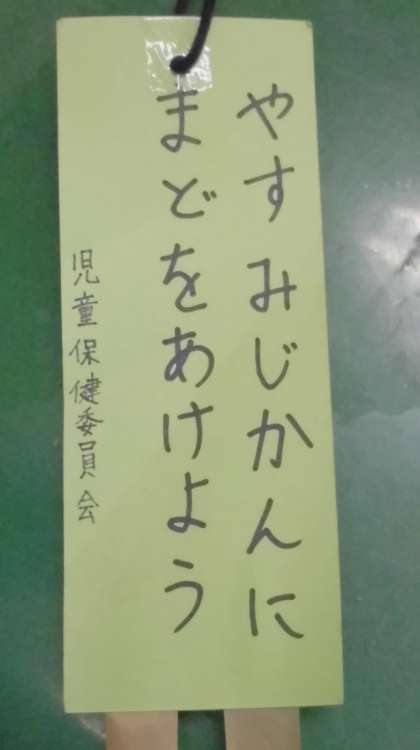 やすみじかんに
まどをあけよう
児童保健委員会